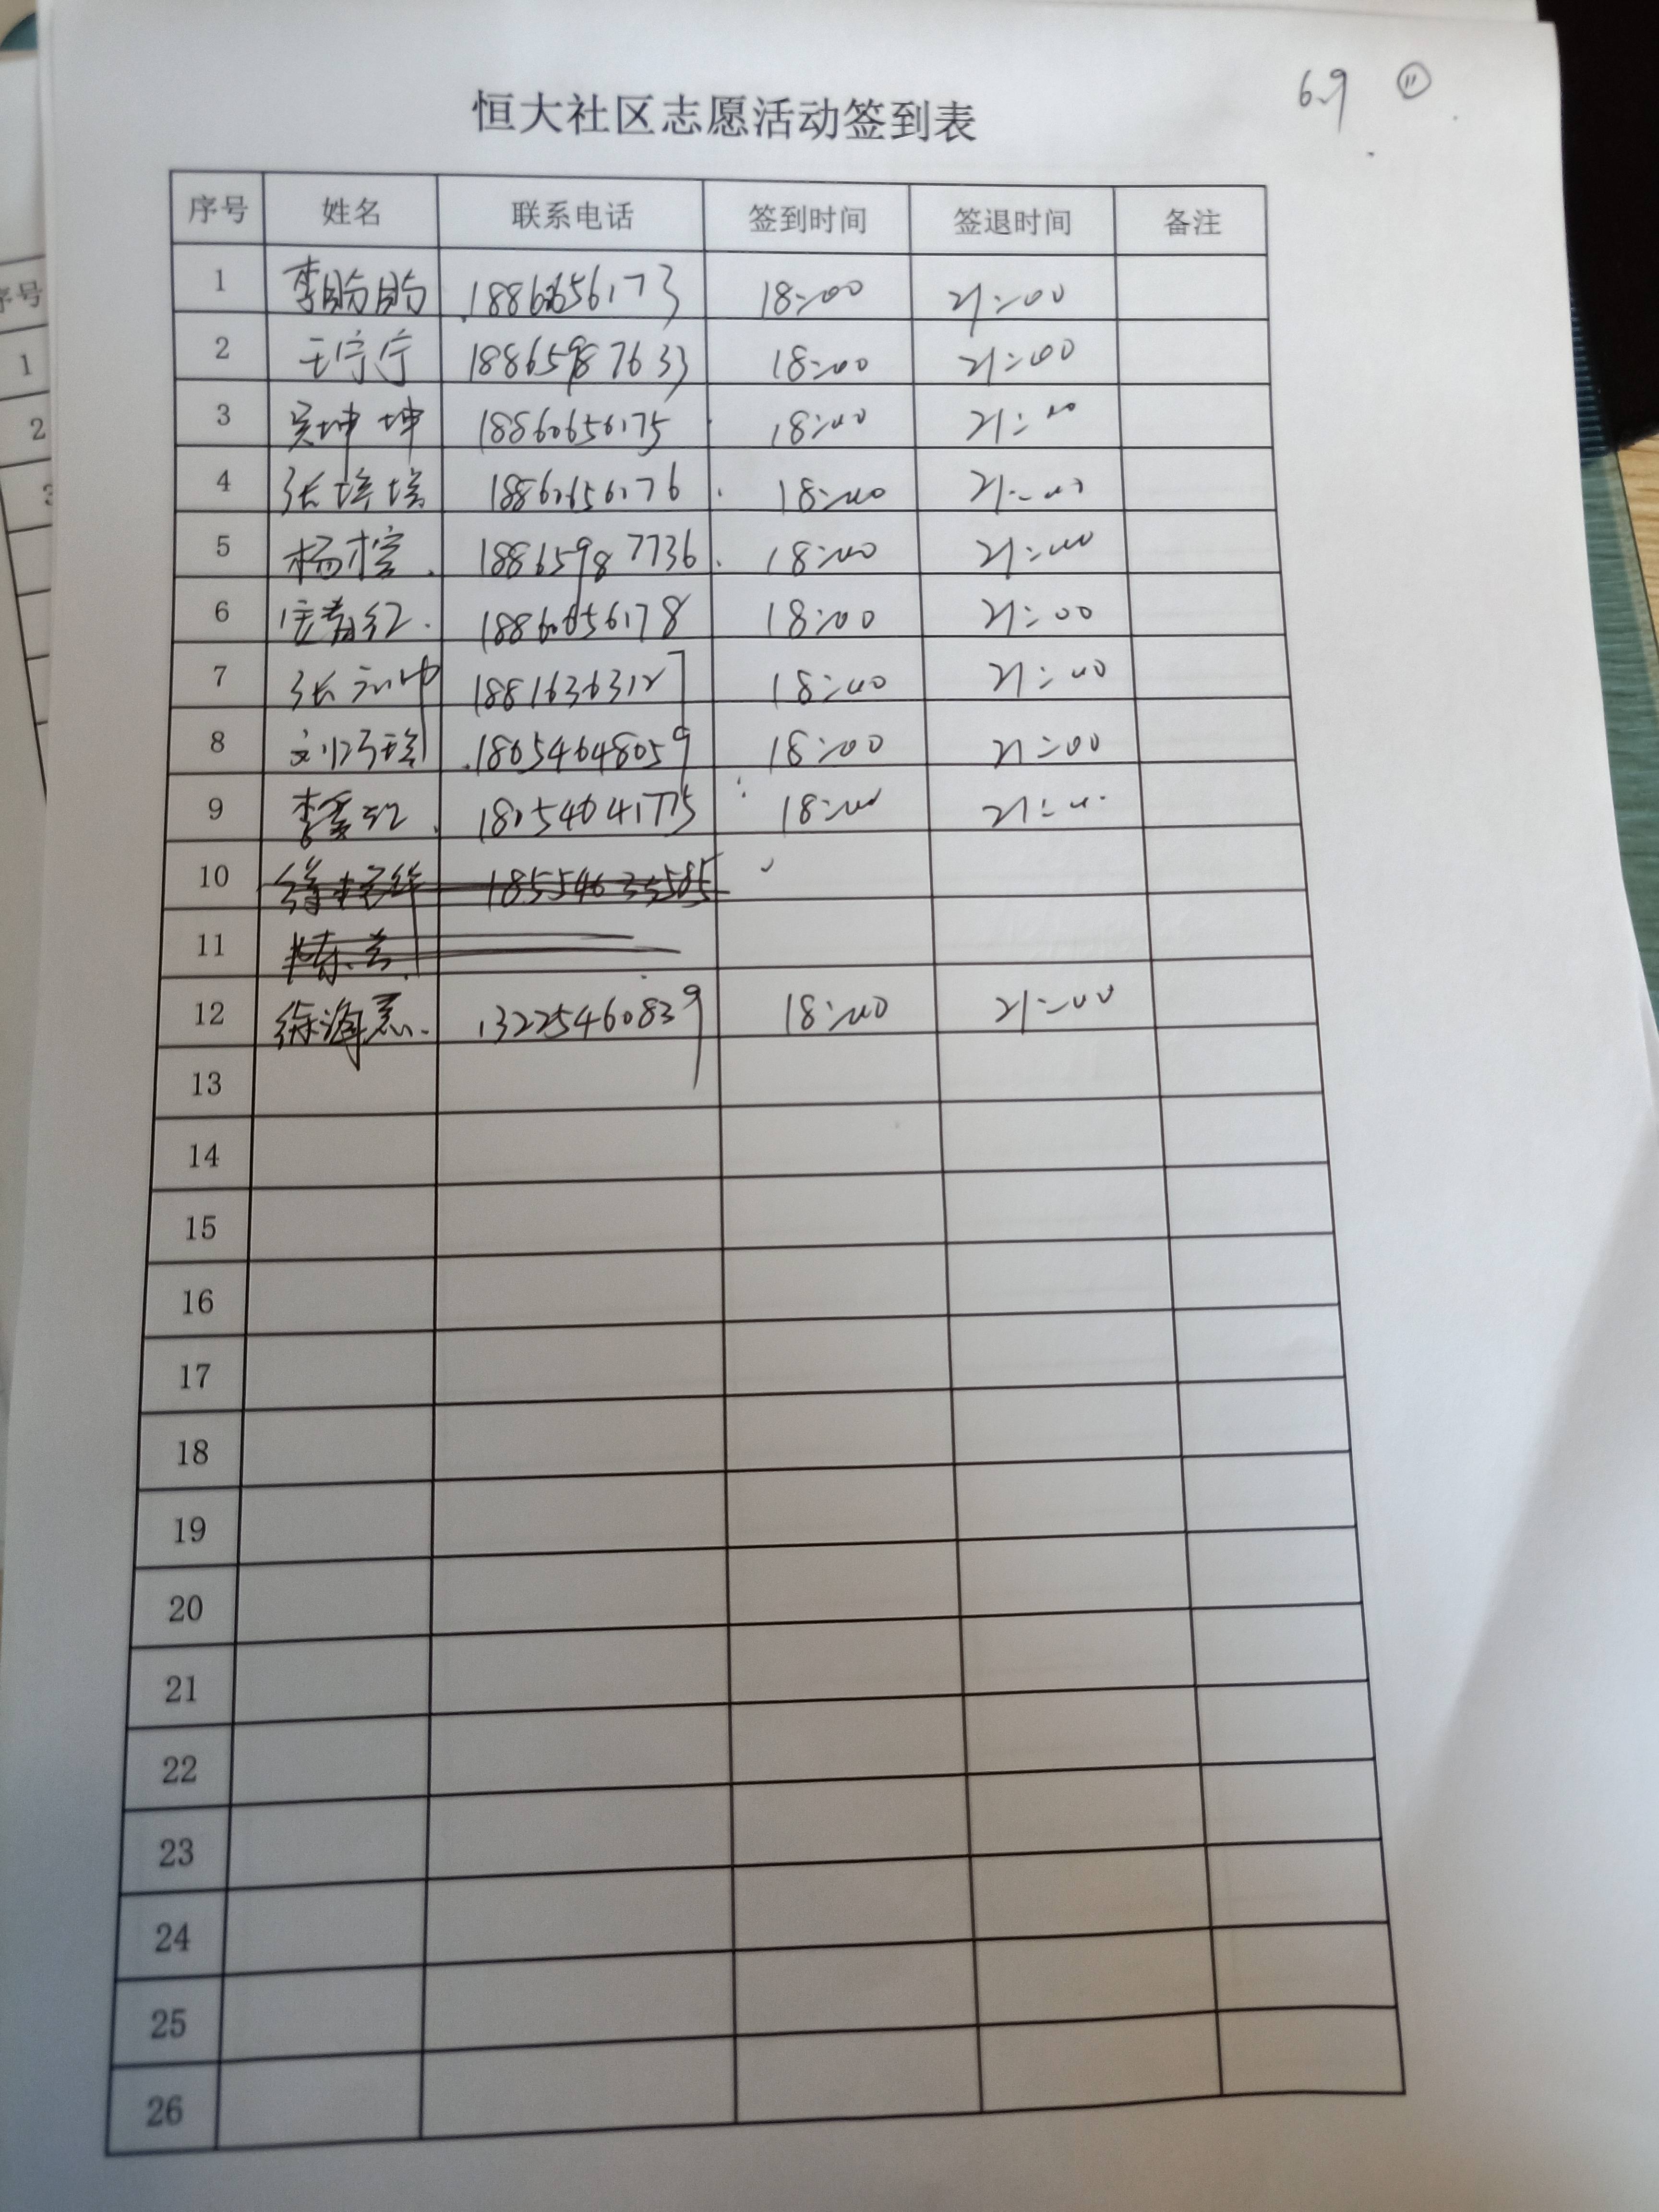 6.9 ⑪
恒大社区志愿活动签到表
序号 姓名 联系电话 签到时间 签退时间 备注
1 李盼盼 18860656173 18:00 21:00
2 王宁宁 18865987633 18:00 21:00
3 吴坤坤 18860656175 18:00 21:00
4 张培培 18860656176 18:00 21:00
5 杨 18865987736 18:00 21:00
6 18860656178 18:00 21:00
7 张 18816363127 18:00 21:00
8 刘 18654648059 18:00 21:00
9 李爱红 18:00 21:00
10
11
12 徐海燕 13225460839 18:00 21:00
13
14
15
16
17
18
19
20
21
22
23
24
25
26
序号
1
2
3